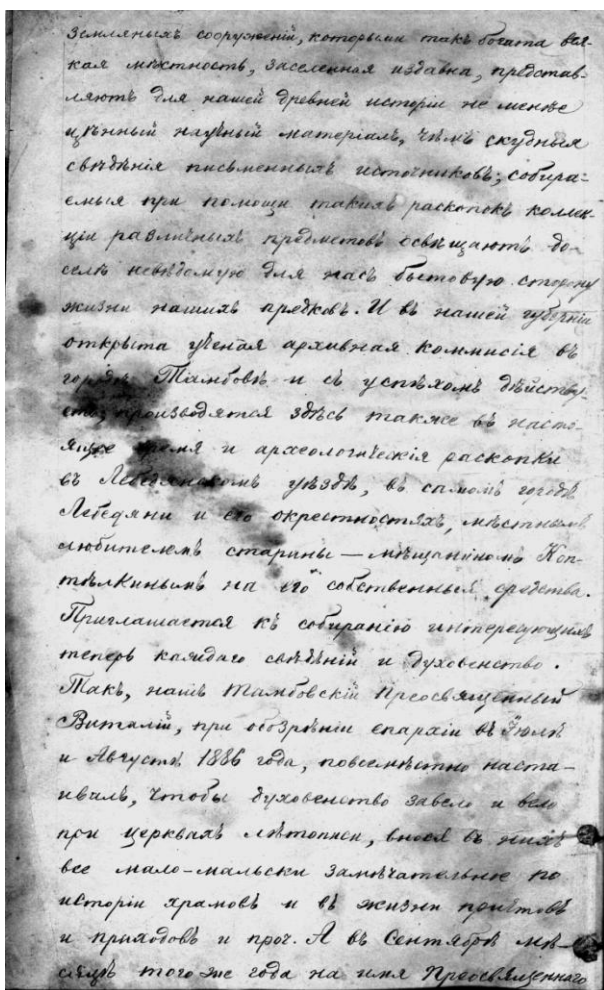 земляныхъ сооруженій, которыми такъ богата вся-
кая мѣстность, заселенная издавна, представ-
ляютъ для нашей древней исторіи не менѣе
цѣнный научный матеріалъ, чѣмъ скудныя
свѣдѣнія письменныхъ источниковъ; собира-
емыя при помощи такихъ раскопокъ коллек-
ціи различныхъ предметовъ освѣщаютъ до-
селѣ невѣдомую для насъ бытовую сторону
жизни нашихъ предковъ. И въ нашей губерніи
открыта ученая архивная коммисія въ
городѣ Тамбовѣ и съ успѣхомъ дѣйству-
етъ; производятся здѣсь также въ насто-
ящее время и археологическія раскопки
въ Лебедянскомъ уѣздѣ, въ самомъ городѣ
Лебедяни и его окрестностяхъ, мѣстнымъ
любителемъ старины — мѣщаниномъ Коп-
тѣлкинымъ на его собственныя средства.
Приглашается къ собиранію интересующихъ
теперь каждаго свѣдѣній и духовенство.
Такъ, нашъ Тамбовскій Преосвященный
Виталій, при обозрѣніи епархіи въ Іюлѣ
и Августѣ 1886 года, повсемѣстно наста-
ивалъ, чтобы духовенство завело и вело
при церквахъ лѣтописи, внося въ нихъ
все мало-мальски замѣчательное по
исторіи храмовъ и въ жизни причтовъ
и приходовъ и проч. А въ Сентябрѣ мѣ-
сяцѣ того же года на имя Преосвященнаго